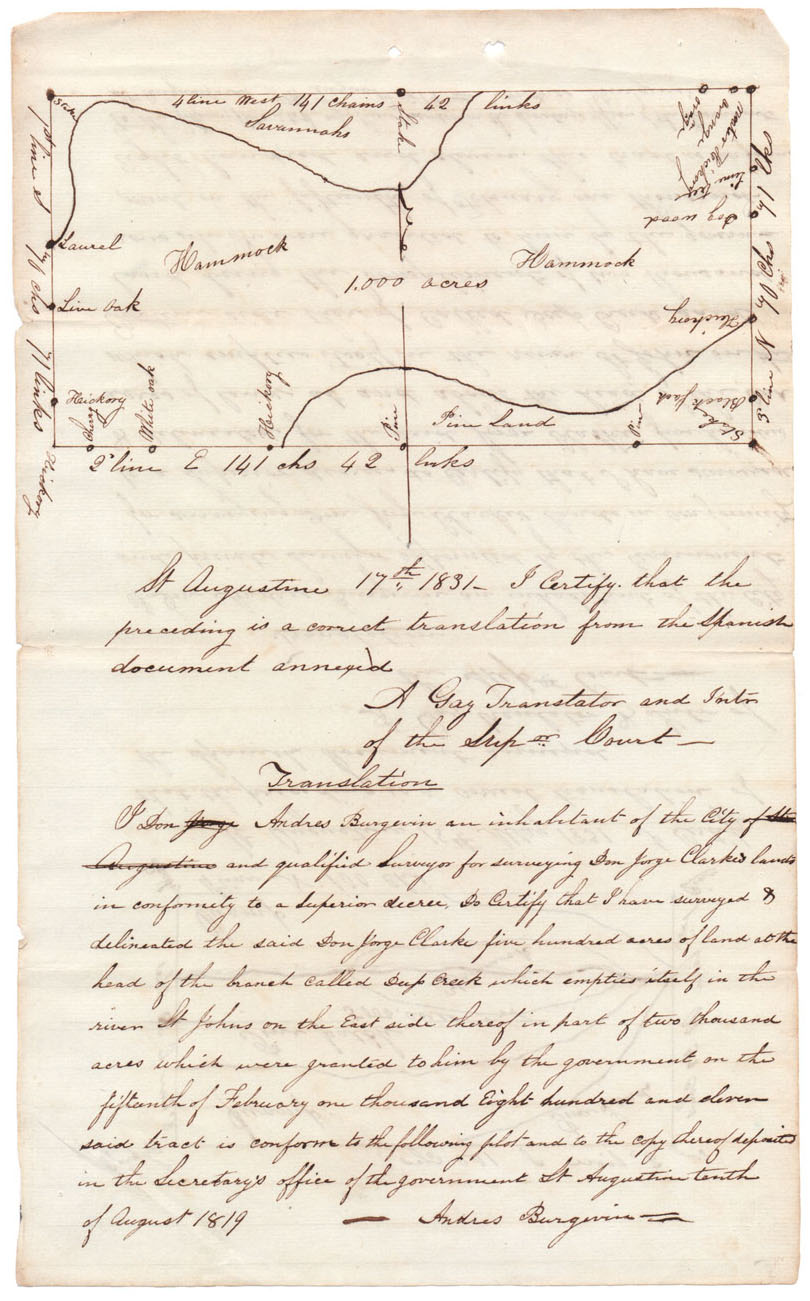 4 line West 141 chains 42 links
Stake
Stake
Savannahs
1st line S 70 chs 71 links
Laurel
Hammock
Hammock
1.000 acres
Live Oak
Hickory
Cherry
White oak
Hickory
Pine
Pine Land
Pine
Hickory
2d line E 141 chs 42 links
3d line N 70 Chs 71 lks
Stake
Black Jack
Hickory
Dog wood
Lime tree
Hickory
orange
orange
St Augustine 17th 1831 – I Certify. that the
preceding is a correct translation from the Spanish
document annexed
A Gay Translator and Intr
of the Supor Court –
Translation
I Don Jorge Andres Burgevin an inhabitant of the City of St
Augustine and qualified Surveyor for surveying Don Jorge Clarke's lands
in conformity to a Superior decree, Do Certify that I have surveyed &
delineated the said Don Jorge Clarke five hundred acres of land at the
head of the branch called Deep Creek which empties itself in the
river St Johns on the East side thereof in part of two thousand
acres which were granted to him by the government on the
fifteenth of February one thousand Eight hundred and eleven
said tract is conform to the following plot and to the copy thereof deposited
in the Secretary's office of the government St Augustine tenth
of August 1819 — Andres Burgevin